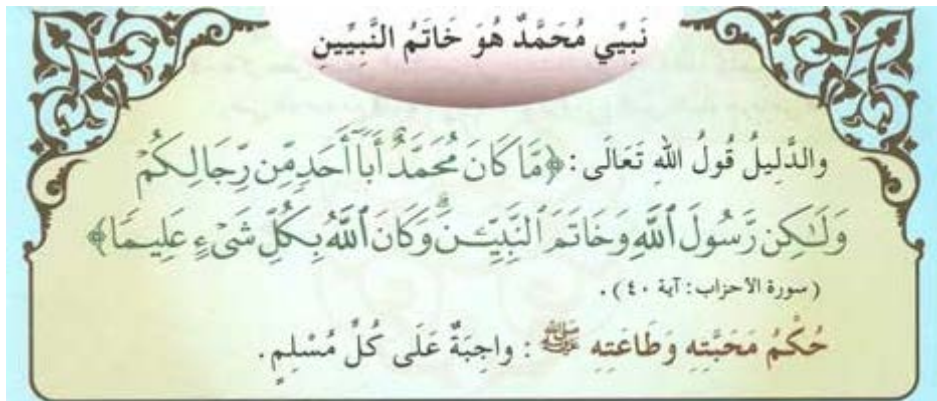 نَبِيِّي مُحَمَّدٌ هُوَ خَاتَمُ النَّبِيِّينِ
والدَّلِيلُ قُولُ اللهِ تَعَالَى: ﴿مَّا كَانَ مُحَمَّدٌ أَبَآ أَحَدٍ مِّن رِّجَالِكُمْ
وَلَٰكِن رَّسُولَ ٱللَّهِ وَخَاتَمَ ٱلنَّبِيِّـۧنَ ۗ وَكَانَ ٱللَّهُ بِكُلِّ شَىْءٍ عَلِيمًا﴾
(سورة الأحزاب: آية ٤٠).
حُكْمُ مَحَبَّتِهِ وَطَاعَتِهِ ﷺ: واجِبَةٌ عَلَى كُلِّ مُسْلِمٍ.